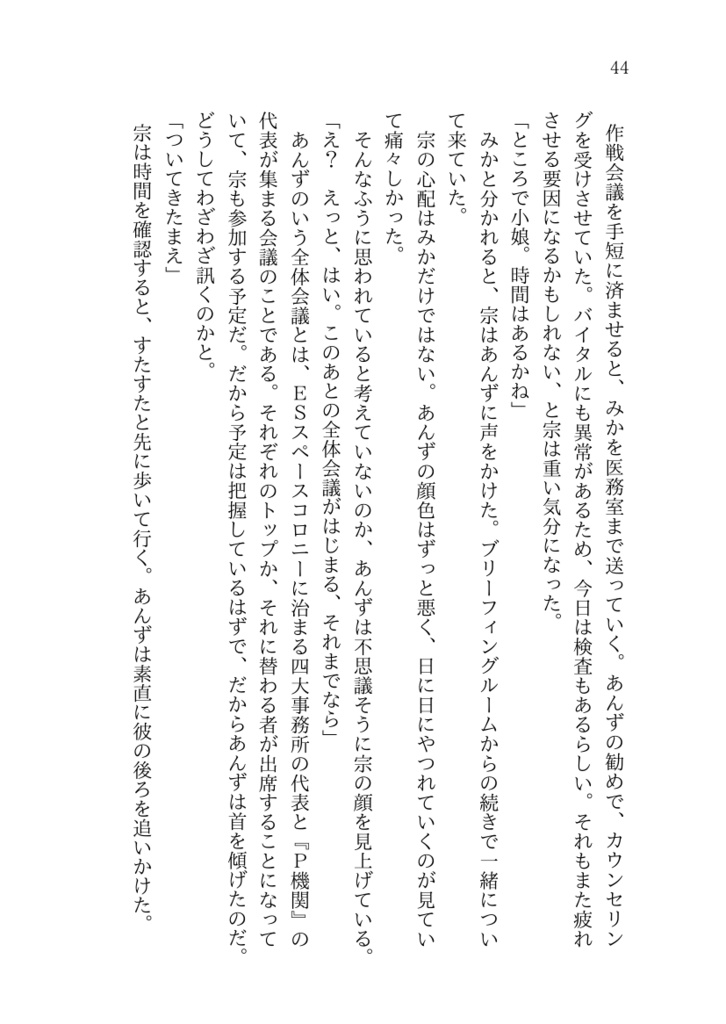 44
作戦会議を手短に済ませると、みかを医務室まで送っていく。あんずの勧めで、カウンセリン
グを受けさせていた。バイタルにも異常があるため、今日は検査もあるらしい。それもまた疲れ
させる要因になるかもしれない、と宗は重い気分になった。
「ところで小娘。時間はあるかね」
みかと分かれると、宗はあんずに声をかけた。ブリーフィングルームからの続きで一緒につい
て来ていた。
宗の心配はみかだけではない。あんずの顔色はずっと悪く、日に日にやつれていくのが見てい
て痛々しかった。
そんなふうに思われていると考えていないのか、あんずは不思議そうに宗の顔を見上げている。
「え？　えっと、はい。このあとの全体会議がはじまる、それまでなら」
あんずのいう全体会議とは、ＥＳスペースコロニーに治まる四大事務所の代表と『Ｐ機関』の
代表が集まる会議のことである。それぞれのトップか、それに替わる者が出席することになって
いて、宗も参加する予定だ。だから予定は把握しているはずで、だからあんずは首を傾げたのだ。
どうしてわざわざ訊くのかと。
「ついてきたまえ」
宗は時間を確認すると、すたすたと先に歩いて行く。あんずは素直に彼の後ろを追いかけた。